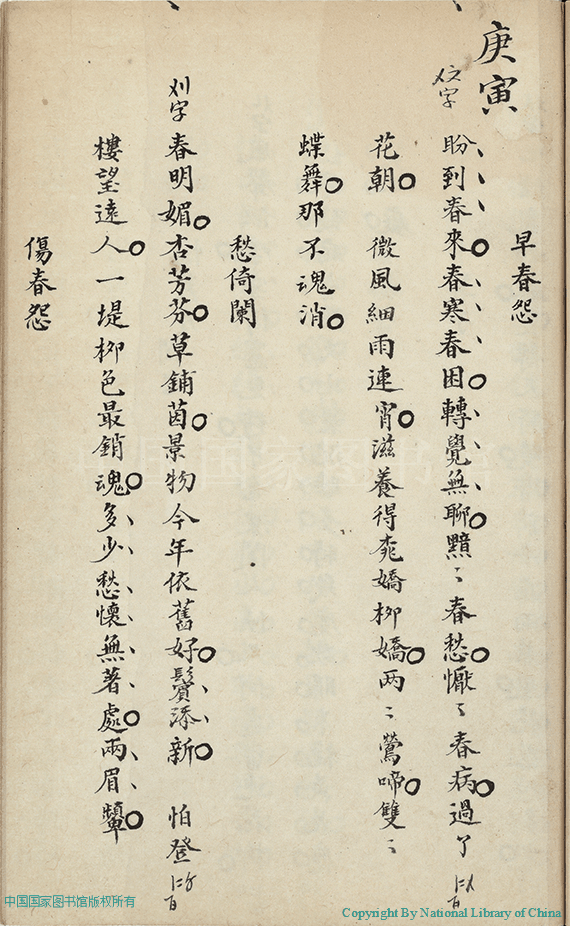 庚寅
早春怨
文字
盼到春來春寒春困轉覺無聊黯〻春愁懨〻春病過了
花朝　微風細雨連宵滋養得桃嬌柳嬌兩〻鶯啼雙〻
蝶舞那不魂消
愁倚闌
刈字
春明媚杏芳芬草鋪茵景物今年依舊好鬢添新　怕登
樓望遠人一堤柳色最銷魂多少愁懷無著處兩眉顰
傷春怨
中国国家图书馆
中国国家图书馆版权所有
Copyright By National Library of China